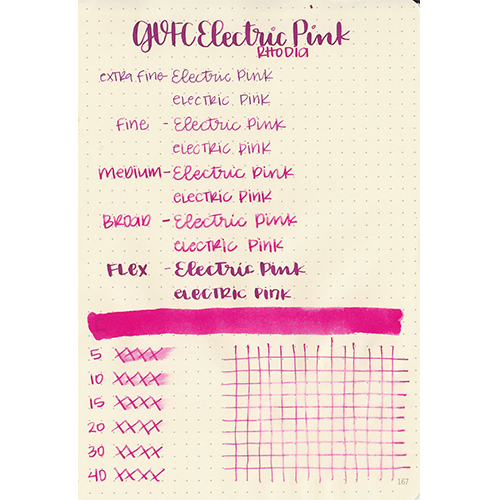 GVFC Electric Pink
RHODIA
extra fine - Electric Pink
electric pink
Fine - Electric Pink
electric pink
Medium - Electric Pink
electric pink
Broad - Electric Pink
electric pink
Flex - Electric Pink
electric pink
5 XXXX
10 XXXX
15 XXXX
20 XXXX
30 XXXX
40 XXXX
167